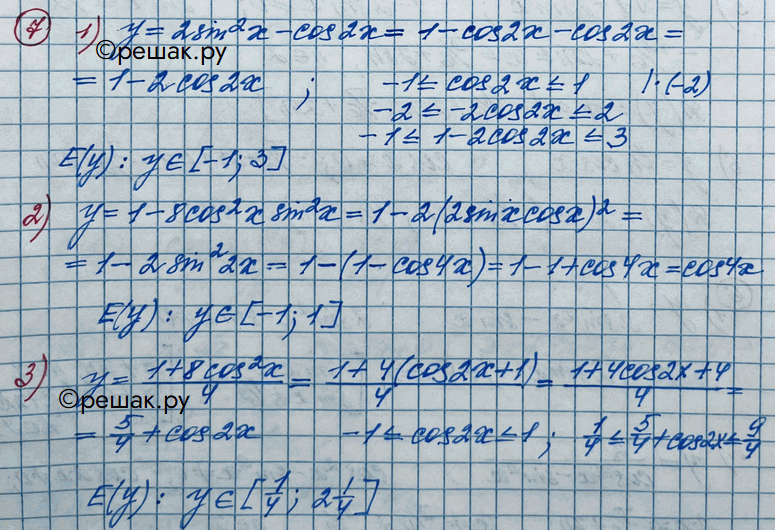 7 1) y = 2sin²x - cos2x = 1 - cos2x - cos2x =
©решак.ру
= 1 - 2cos2x ; -1 ≤ cos2x ≤ 1 |·(-2)
-2 ≤ -2cos2x ≤ 2
-1 ≤ 1 - 2cos2x ≤ 3
E(y): y ∈ [-1; 3]
2) y = 1 - 8cos²x sin²x = 1 - 2(2sinx cosx)² =
= 1 - 2sin²2x = 1 - (1 - cos4x) = 1 - 1 + cos4x = cos4x
E(y): y ∈ [-1; 1]
3) y = (1+8cos²x)/4 = (1+4(cos2x+1))/4 = (1+4cos2x+4)/4 =
©решак.ру
= 5/4 + cos2x -1 ≤ cos2x ≤ 1 ; 1/4 ≤ 5/4 + cos2x ≤ 9/4
E(y): y ∈ [1/4; 2 1/4]